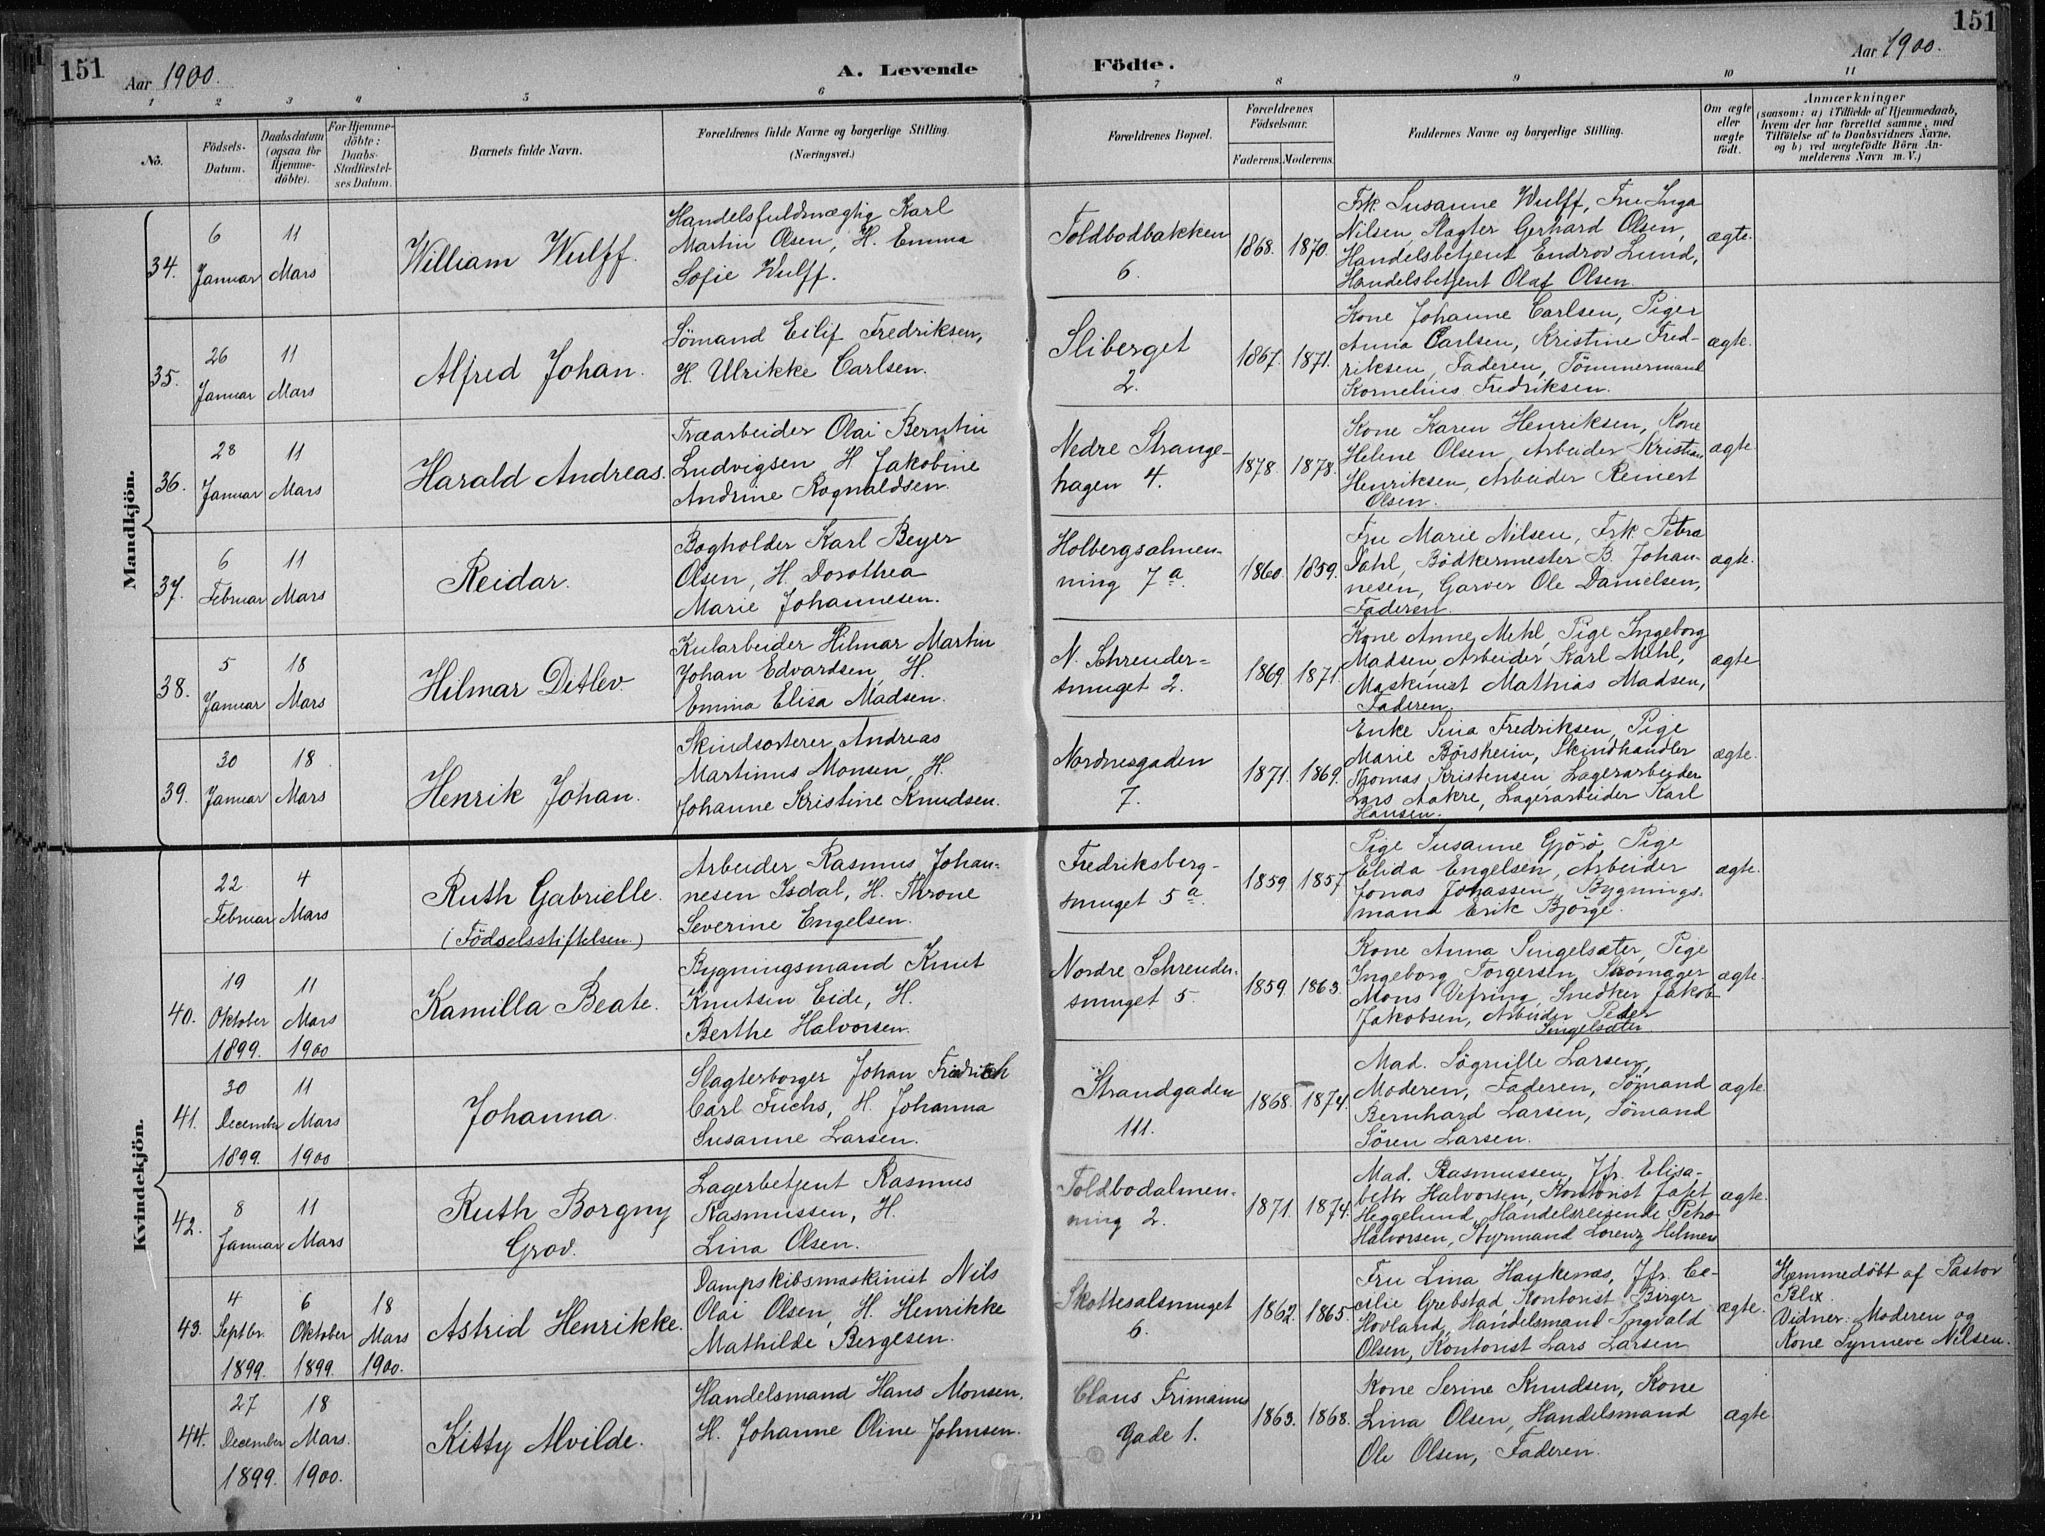 151
Aar 1900.
A. Levende Födte.
Aar 1900.
151
1 2 3 4 5 6 7 8 9 10 11
No.
Födsels-
Datum.
Daabsdatum
(ogsaa for
Hjemme-
döbte).
For Hjemme-
döbte:
Daabs-
Stadfæstel-
ses Datum.
Barnets fulde Navn.
Forældrenes fulde Navne og borgerlige Stilling.
(Næringsvei.)
Forældrenes Bopæl.
Forældrenes
Födselsaar.
Faderens. Moderens.
Faddernes Navne og borgerlige Stilling.
Om ægte
eller
uægte
födt.
Anmærkninger
(saasom: a) i Tilfælde af Hjemmedaab,
hvem der har forrettet samme, med
Tilföielse af to Daabsvidners Navne,
og b) ved uægtefödte Börn An-
melderens Navn m. V.)
Mandkjön.
34.
6
Januar
11
Mars
William Wulff.
Handelsfuldmægtig Karl
Martin Olsen, H. Emma
Sofie Wulff.
Toldbodbakken
6.
1868. 1870.
Frk. Susanne Wulff, Fru Inga
Nilsen, Slagter Gerhard Olsen,
Handelsbetjent Endrov Lund,
Handelsbetjent Olaf Olsen.
ægte.
35.
26
Januar
11
Mars
Alfred Johan.
Sömand Eilif Fredriksen,
H. Ulrikke Carlsen.
Sliberget
2.
1867. 1871.
Kone Johanne Carlsen, Piger
Anna Carlsen, Kristine Fred-
riksen, Faderen, Tömmermand
Kornelius Fredriksen.
ægte.
36.
28
Januar
11
Mars
Harald Andreas.
Træarbeider Olai Berntin
Ludvigsen H. Jakobine
Andrine Rognaldsen.
Nedre Strange-
hagen 4.
1878. 1878.
Kone Karen Henriksen, Kone
Helene Olsen, Arbeider Kristian
Henriksen, Arbeider Reinert
Olsen.
ægte.
37.
6
Februar
11
Mars
Reidar.
Bogholder Karl Beyer
Olsen, H. Dorothea
Marie Johannesen.
Holbergsalmen-
ning 7a.
1860. 1859.
Fru Marie Nilsen, Frk. Petra
Dahl, Bödkermester B. Johan-
nesen, Garver Ole Danielsen,
Faderen.
ægte.
38.
5
Januar
18
Mars
Hilmar Ditlev.
Kularbeider Hilmar Martin
Johan Edvardsen, H.
Emma Elisa Madsen.
N. Schreuder-
smuget 2.
1869. 1871.
Kone Anne Mehl, Pige Ingeborg
Madsen, Arbeider Karl Mehl,
Maskinist Mathias Madsen,
Faderen.
ægte
39.
30
Januar
18.
Mars
Henrik Johan.
Skindsorterer Andreas
Martinus Monsen, H.
Johanne Kristine Knudsen.
Nordnesgaden
7.
1871. 1869.
Enke Sina Fredriksen, Pige
Marie Börsheim, Skindhandler
Thomas Kristensen, Lagerarbeider
Lars Aakre, Lagerarbeider Karl
Hansen.
ægte.
Kvindekjön.
22
Februar
4
Mars
Ruth Gabrielle.
(Födselsstiftelsen.)
Arbeider Rasmus Johan-
nesen Isdal, H. Throne
Severine Engelsen.
Fredriksberg-
smuget 5a.
1859. 1857.
Pige Susanne Gjörö, Pige
Elida Engelsen, Arbeider
Jonas Johassen, Bygnings-
mand Erik Björge.
ægte.
40.
19
Oktober
1899.
11
Mars
1900
Kamilla Beate.
Bygningsmand Knut
Knutsen Eide, H.
Berthe Halvorsen.
Nordre Schreuder-
smuget 5.
1859. 1863.
Kone Anna Singelsæter, Pige
Ingeborg Torgersen, Skomager
Mons Vefring, Snedker Jakob
Jakobsen, Arbeider Peder
Singelsæter.
ægte.
41.
30
December
1899.
11
Mars
1900
Johanna.
Slagterborger Johan Fredrich
Carl Fuchs, H. Johanna
Susanne Larsen.
Strandgaden
111.
1868. 1874.
Mad. Lögnille Larsen,
Moderen, Faderen, Sömand
Bernhard Larsen, Sömand
Sören Larsen.
ægte.
42.
8
Januar
11
Mars
Ruth Borgny
Grov.
Lagerbetjent Rasmus
Rasmussen, H.
Lina Olsen.
Toldbodalmen-
ning 2.
1871. 1874.
Mad. Rasmussen, Jfr. Elisa-
beth Halvorsen, Kontorist Jafet
Heggelund, Handelsreisende Petro
Halvorsen, Styrmand Lorenz Helmers
ægte.
43.
4
Septbr.
1899.
6
Oktober
1899.
18
Mars
1900.
Astrid Henrikke.
Dampskibsmaskinist Nils
Olai Olsen, H. Henrikke
Mathilde Bergesen.
Skottesalsmuget
6.
1862. 1865.
Fru Lina Haukenæs, Jfr. Ce-
cilie Grebstad, Kontorist Birger
Hovland, Handelsmand Ingvald
Olsen, Kontorist Lars Larsen.
ægte.
Hjemmedöbt af Pastor
Klix.
Vidner: Moderen og
Kone Synneve Nilsen.
44.
27
December
1899.
18
Mars.
1900.
Kitty Alvilde.
Handelsmand Hans Monsen.
H. Johanne Oline Johnsen.
Claus Frimanns
Gade 1.
1863. 1868.
Kone Serine Knudsen, Kone
Lina Olsen, Handelsmand
Ole Olsen, Faderen.
ægte